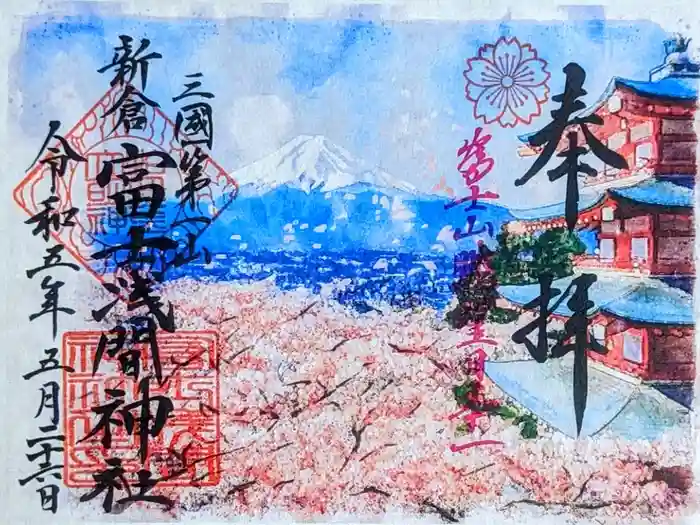 奉拝
富士山眺望日本一
三國第一山
新倉富士浅間神社
令和五年五月二十六日